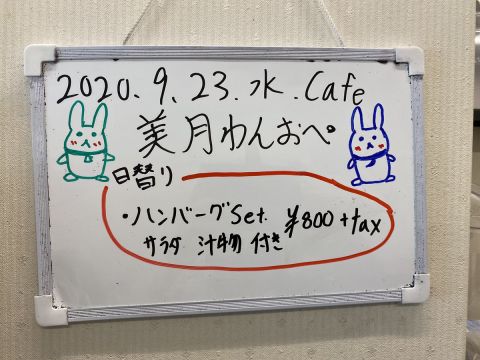 2020.9.23.水.Cafe
美月わんおぺ
日替り
・ハンバーグSet ¥800+tax
サラダ 汁物 付き